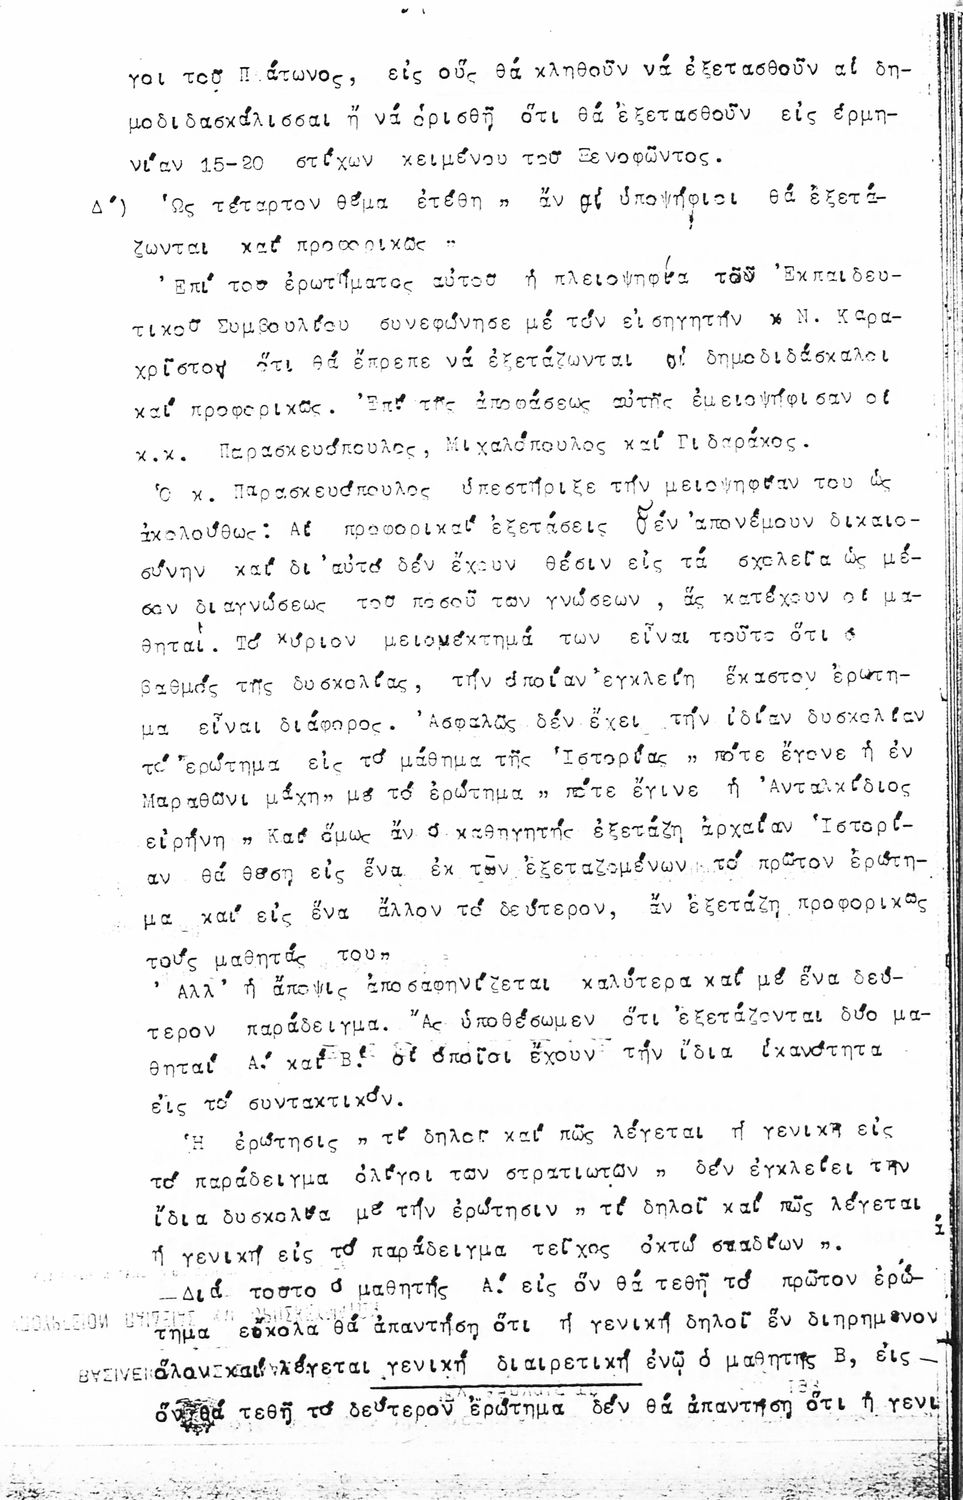 γοι τοῦ Πλάτωνος, εἰς οὕς θά κληθοῦν νά ἐξετασθοῦν αἱ δη-
μοδιδασκάλισσαι ἤ νά ὁρισθῇ ὅτι θά ἐξετασθοῦν εἰς ἑρμη-
νείαν 15-20 στίχων κειμένου τοῦ Ξενοφῶντος.
Δ΄) Ὡς τέταρτον θέμα ἐτέθη " ἄν οἱ ὑποψήφιοι θά ἐξετά-
ζωνται καί προφορικῶς "
Ἐπί τοῦ ἐρωτήματος αὐτοῦ ἡ πλειοψηφία τοῦ Ἐκπαιδευ-
τικοῦ Συμβουλίου συνεφώνησε μέ τόν εἰσηγητήν κ Ν. Καρα-
χρῖστον ὅτι θά ἔπρεπε νά ἐξετάζωνται οἱ δημοδιδάσκαλοι
καί προφορικῶς. Ἐπί τῆς ἀποφάσεως αὐτῆς ἐμειοψήφισαν οἱ
κ.κ. Παρασκευόπουλος, Μιχαλόπουλος καί Γιδαράκος.
Ὁ κ. Παρασκευόπουλος ὑπεστήριξε τήν μειοψηφίαν του ὡς
ἀκολούθως: Αἱ προφορικαί ἐξετάσεις δέν ἀπονέμουν δικαιο-
σύνην καί δι'αὐτό δέν ἔχουν θέσιν εἰς τά σχολεῖα ὡς μέ-
σον διαγνώσεως τοῦ ποσοῦ των γνώσεων , ἅς κατέχουν οἱ μα-
θηταί. Τό κύριον μειονέκτημά των εἶναι τοῦτο ὅτι ὁ
βαθμός τῆς δυσκολίας, τήν ὁποίαν ἐγκλείη ἕκαστον ἐρωτη-
μα εἶναι διάφορος. Ἀσφαλῶς δέν ἔχει τήν ἰδίαν δυσκολίαν
τό ἐρώτημα εἰς τό μάθημα τῆς Ἱστορίας " πότε ἔγονε ἡ ἐν
Μαραθῶνι μάχη" μέ τό ἐρώτημα " πότε ἔγινε ἡ Ἀνταλκίδιος
εἰρήνη " Καί ὅμως ἄν ὁ καθηγητής ἐξετάζη ἀρχαίαν Ἱστορί-
αν θά θέση εἰς ἕνα ἐκ τῶν ἐξεταζομένων τό πρῶτον ἐρώτη-
μα καί εἰς ἕνα ἄλλον τό δεύτερον, ἄν ἐξετάζη προφορικῶς
τούς μαθητάς του"
Ἀλλ' ἡ ἄποψις ἀποσαφηνίζεται καλύτερα καί μέ ἕνα δεύ-
τερον παράδειγμα. Ἄς ὑποθέσωμεν ὅτι ἐξετάζονται δύο μα-
θηταί Α΄ καί Β΄ οἱ ὁποῖοι ἔχουν τήν ἴδια ἱκανότητα
εἰς τό συντακτικόν.
Ἡ ἐρώτησις " τί δηλοῖ καί πῶς λέγεται ἡ γενική εἰς
τό παράδειγμα ὀλίγοι των στρατιωτῶν " δέν ἐγκλείει τήν
ἴδια δυσκολία μέ τήν ἐρώτησιν " τί δηλοῖ καί πῶς λέγεται
ἡ γενική εἰς τό παράδειγμα τεῖχος ὀκτώ σταδίων ".
Διά τοῦτο ὁ μαθητής Α΄ εἰς ὅν θά τεθῇ τό πρῶτον ἐρώ-
τημα εὔκολα θά ἀπαντήση ὅτι ἡ γενική δηλοῖ ἕν διηρημένον
ὅλον καί λέγεται γενική διαιρετική ἐνῷ ὁ μαθητής Β, εἰς
ὅν θά τεθῇ τό δεύτερον ἐρώτημα δέν θά ἀπαντήση ὅτι ἡ γενι